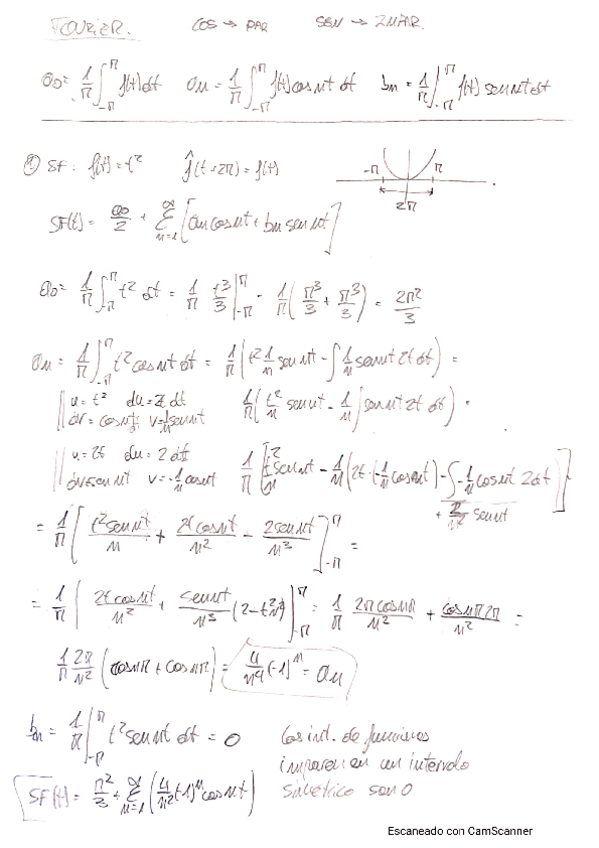 FOURIER. COS → PAR SEN → IMPAR.
a₀ = 1/π ∫_{-π}^{π} f(t) dt aₙ = 1/π ∫_{-π}^{π} f(t) cos nt dt bₙ = 1/π ∫_{-π}^{π} f(t) sen nt dt
① SF: f(t) = t² f̂(t+2π) = f(t) -π π
2π
SF(t) = a₀/2 + Σ_{n=1}^{∞} [aₙ cos nt + bₙ sen nt]
a₀ = 1/π ∫_{-π}^{π} t² dt = 1/π t³/3 |_{-π}^{π} = 1/π (π³/3 + π³/3) = 2π²/3
aₙ = 1/π ∫_{-π}^{π} t² cos nt dt = 1/π (t² 1/n sen nt - ∫ 1/n sen nt 2t dt) =
u = t² du = 2t dt 1/π (t²/n sen nt - 1/n ∫ sen nt 2t dt) =
dv = cos nt v = 1/n sen nt
u = 2t du = 2 dt 1/π [t²/n sen nt - 1/n (2t · (-1/n cos nt) - ∫ -1/n cos nt 2dt)]
dv = sen nt v = -1/n cos nt + 2/n² sen nt
= 1/π [t² sen nt/n + 2t cos nt/n² - 2 sen nt/n³]_{-π}^{π} =
= 1/π [2t cos nt/n² + sen nt/n³ (2 - t²n²)]_{-π}^{π} = 1/π 2π cos nπ/n² + cos nπ 2π/n² =
1/π 2π/n² (cos nπ + cos nπ) = 4/n² (-1)ⁿ = aₙ
bₙ = 1/π ∫_{-π}^{π} t² sen nt dt = 0 Las int. de funciones
impares en un intervalo
simétrico son 0
SF(t) = π²/3 + Σ_{n=1}^{∞} (4/n² (-1)ⁿ cos nt)
Escaneado con CamScanner